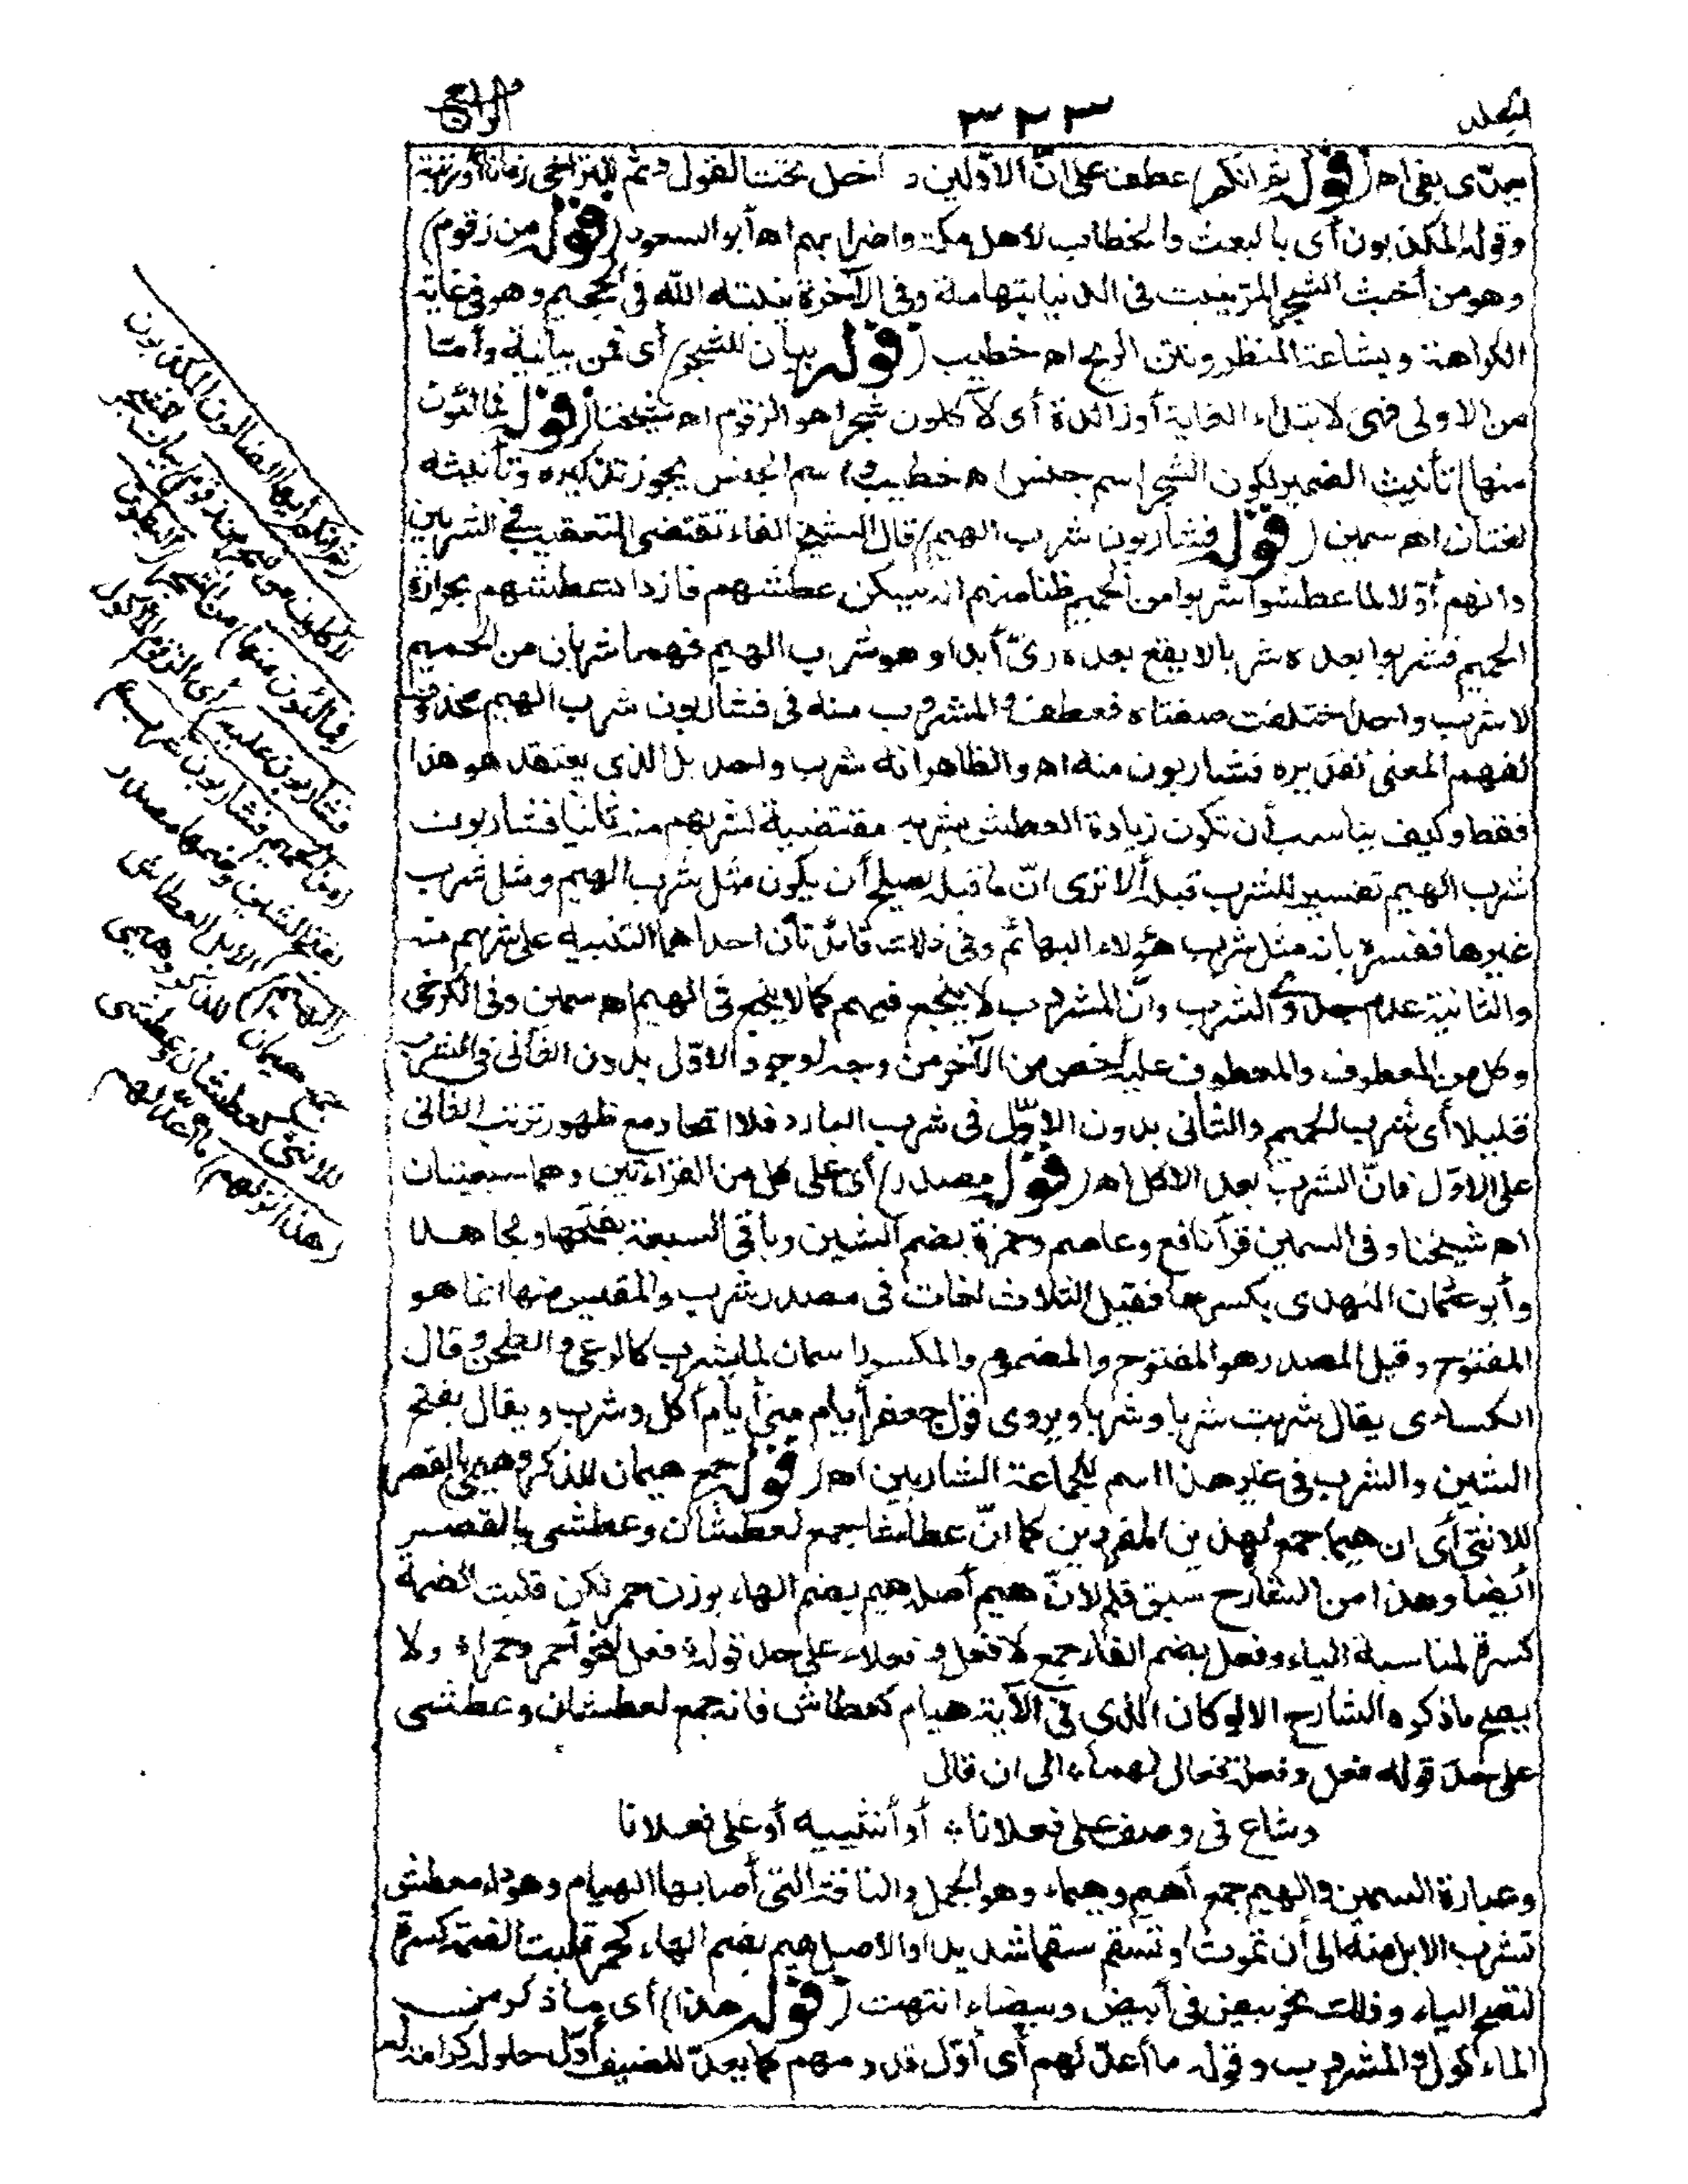 المجلد
٣٢٣
الرابع
سدى بقى اھ (قوله ثم انكم) عطف على ان الاولين داخل تحت القول وثم للتراخى زمانا أو رتبة
وقوله المكذبون أى بالبعث والخطاب لاهل مكة واضرابهم اھ أبو السعود (قوله من زقوم)
وهو من أخبث الشجر المر ينبت فى الدنيا بتهامة وفى الآخرة ينبته الله فى الجحيم وهو فى غاية
الكراهة وبشاعة المنظر ونتن الريح اھ خطيب (قوله بيان للشجر) أى فمن بيانية وأما
من الاولى فهى لابتداء الغاية أو زائدة أى لآكلون شجرا هو الزقوم اھ شيخنا (قوله فمالئون
منها) تأنيث الضمير لكون الشجر اسم جنس اھ خطيب واسم الجنس يجوز تذكيره وتأنيثه
لغتان اھ سمين (قوله فشاربون شرب الهيم) قال الشيخ الفاء تقتضى التعقيب فى الشربين
وانهم أولا لما عطشوا شربوا من الحميم ظنا منهم انه يسكن عطشهم فازداد عطشهم بحرارة
الحميم فشربوا بعده شربا لا يقع بعده رى أبدا وهو شرب الهيم فهما شربان من الحميم
لا شرب واحد اختلفت صفتاه فعطف والمشروب منه فى فشاربون شرب الهيم محذوف
لفهم المعنى تقديره فشاربون منه اھ والظاهر انه شرب واحد بل الذى يعتقد هو هذا
فقط وكيف يناسب أن تكون زيادة العطش بشربه مقتضية لشربهم منه ثانيا فشاربون
شرب الهيم تفسير للشرب قبله ألا ترى ان ما قبله يصلح أن يكون مثل شرب الهيم ومثل شرب
غيرها ففسره بانه مثل شرب هؤلاء البهائم وفى ذلك فائدتان احداهما التنبيه على شربهم منه
والثانية عدم جدوى الشرب وان المشروب لا ينجع فيهم كما لا ينجع فى الهيم اھ سمين وفى الكرخى
وكل من المعطوف والمعطوف عليه أخص من الآخر من وجه لوجود الاول بدون الثانى فى المشرب
قليلا أى شرب الحميم والثانى بدون الاول فى شرب البارد فلا اتحاد مع ظهور ترتب الثانى
على الاول فان الشرب بعد الاكل اھ (قوله مصدر) أى على كل من القراءتين وهما سبعيتان
اھ شيخنا وفى السمين قرأ نافع وعاصم وحمزة بضم الشين وباقى السبعة بفتحها ومجاهد
وأبو عثمان النهدى بكسرها فقيل الثلاث لغات فى مصدر شرب والمقيس منها انما هو
المفتوح وقيل المصدر هو المفتوح والمضموم والمكسور اسمان لما يشرب كالرعى والطحن وقال
الكسائى يقال شربت شربا وشربا ويروى قول جعفر أيام منى أيام أكل وشرب ويقال بفتح
الشين والشرب فى غير هذا اسم للجماعة الشاربين اھ (قوله جمع هيمان للذكر وهيمى بالقصر
للانثى) أى ان هيما جمع لهذين المفردين كما ان عطاشا جمع لعطشان وعطشى بالقصر
أيضا وهذا من الشارح سبق قلم لان هيم أصله هيم بضم الهاء بوزن حمر لكن قلبت الضمة
كسرة لمناسبة الياء وفعل بضم الفاء جمع لافعل وفعلاء على حد قوله فعل لنحو أحمر وحمراء ولا
يصح ما ذكره الشارح الا لو كان الذى فى الآية هيام كعطاش فانه جمع لعطشان وعطشى
على حد قوله فعل وفعلة فعال لهماء الى ان قال
وشاع فى وصف على فعلانا * أو أنثييه أو على فعلانا
وعبارة السمين والهيم جمع أهيم وهيماء وهو الجمل والناقة التى أصابها الهيام وهو داء معطش
تشرب الابل منه الى أن تموت أو تسقم سقما شديدا والاصل هيم بضم الهاء كحمر قلبت الضمة كسرة
لتصح الياء وذلك نحو بيض فى أبيض وبيضاء انتهت (قوله هذا) أى ما ذكر من
المأكول والمشروب وقوله ما أعد لهم أى أول قدومهم كما يعد للضيف أول حلوله كرامة له
(ثم انكم أيها الضالون المكذبون
لآكلون من شجر من زقوم) بيان للشجر
(فمالئون منها) من الشجر (البطون
فشاربون عليه) أى الزقوم المأكول
(من الحميم فشاربون شرب)
بفتح الشين وضمها مصدر
(الهيم) الابل العطاش
جمع هيمان للذكر وهيمى
للانثى كعطشان وعطشى
(هذا نزلهم) ما أعد لهم